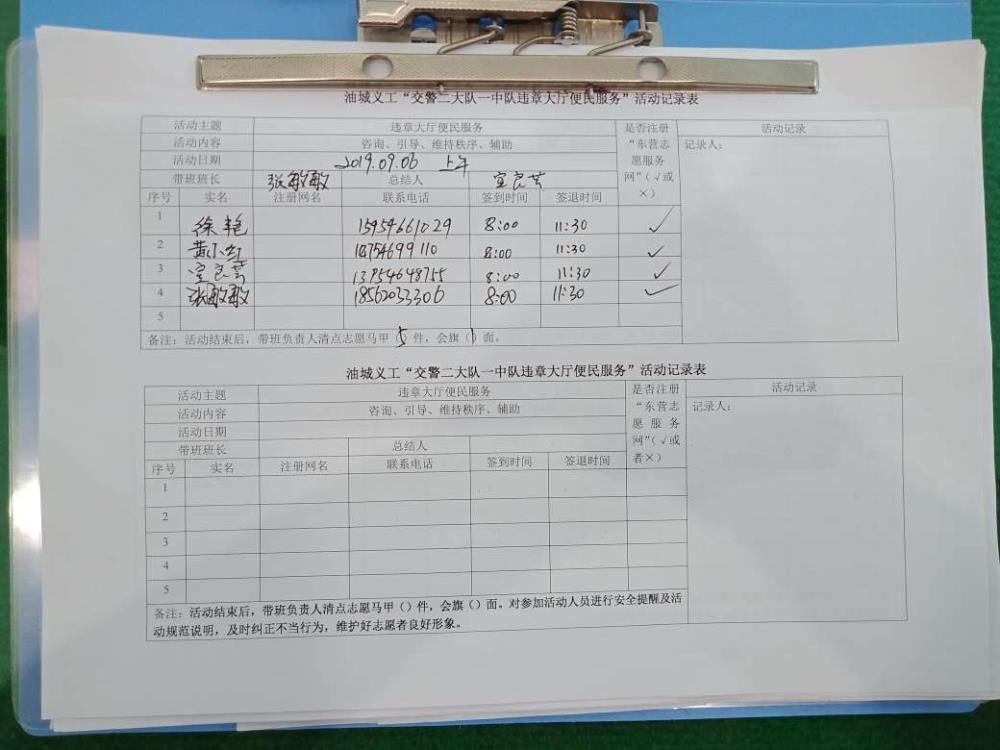 油城义工“交警二大队一中队违章大厅便民服务”活动记录表
活动主题 违章大厅便民服务 是否注册“东营志愿服务网”（√或×） 活动记录
活动内容 咨询、引导、维持秩序、辅助 记录人：
活动日期 2019.09.06 上午
带班班长 张敏敏 总结人 宣良芸
序号 实名 注册网名 联系电话 签到时间 签退时间
1 徐艳 15954661029 8:00 11:30 √
2 黄小红 18754699110 8:00 11:30 √
3 宣良芸 13954648755 8:00 11:30 √
4 张敏敏 18562033306 8:00 11:30 √
5
备注：活动结束后，带班负责人清点志愿马甲（5件，会旗（1）面。
油城义工“交警二大队一中队违章大厅便民服务”活动记录表
活动主题 违章大厅便民服务 是否注册“东营志愿服务网”（√或者×） 活动记录
活动内容 咨询、引导、维持秩序、辅助 记录人：
活动日期
带班班长 总结人
序号 实名 注册网名 联系电话 签到时间 签退时间
1
2
3
4
5
备注：活动结束后，带班负责人清点志愿马甲（）件，会旗（）面。对参加活动人员进行安全提醒及活
动规范说明，及时纠正不当行为，维护好志愿者良好形象。